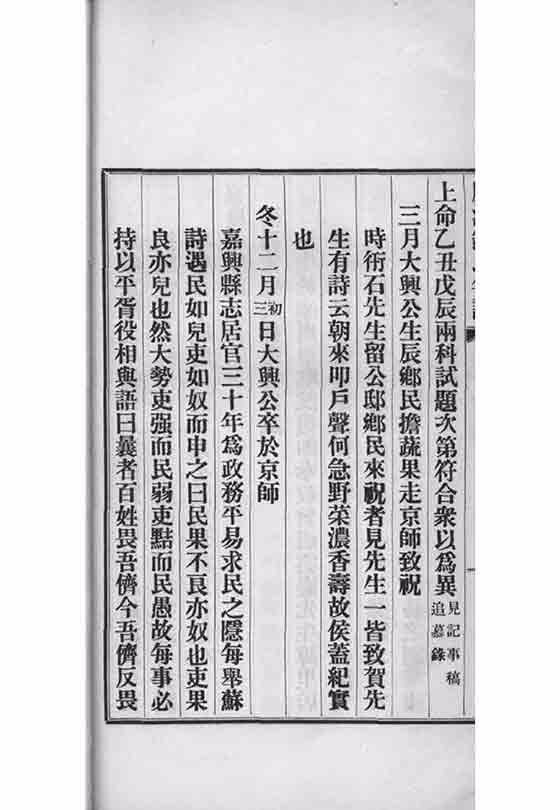 上命乙丑戊辰兩科試題次第符合衆以爲異見記事稿追慕錄
三月大興公生辰鄉民擔蔬果走京師致祝
時衎石先生留公邸鄉民來祝者見先生一皆致賀先
生有詩云朝來叩戶聲何急野菜濃香壽故侯蓋紀實
也
冬十二月初三日大興公卒於京師
嘉興縣志居官三十年爲政務平易求民之隱每舉蘇
詩遇民如兒吏如奴而申之曰民果不良亦奴也吏果
良亦兒也然大勢吏强而民弱吏黠而民愚故每事必
持以平胥役相與語曰曩者百姓畏吾儕今吾儕反畏